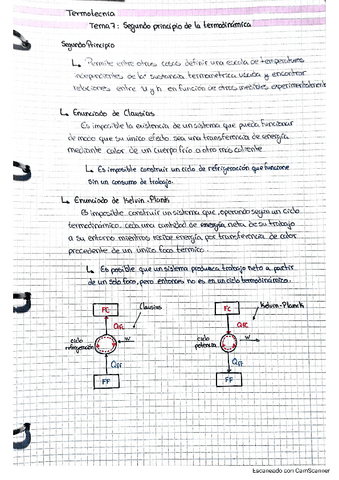 Termotecnia
Tema 7: Segundo principio de la termodinámica
Segundo Principio
↳ Permite entre otras cosas definir una escala de temperaturas
independientes de la sustancia termométrica usada y encontrar
relaciones entre u y h en función de otras medibles experimentalmente
↳ Enunciado de Clausius
Es imposible la existencia de un sistema que pueda funcionar
de modo que su único efecto sea una transferencia de energía
mediante calor de un cuerpo frío a otro más caliente
↳ Es imposible construir un ciclo de refrigeración que funcione
sin un consumo de trabajo.
↳ Enunciado de Kelvin-Plank
Es imposible construir un sistema que, operando según un ciclo
termodinámico, ceda una cantidad de energía neta de su trabajo
a su entorno mientras recibe energía por transferencia de calor
procedente de un único foco térmico.
↳ Es posible que un sistema produzca trabajo neto a partir
de un solo foco, pero entonces no es en un ciclo termodinámico.
FC Clausius FC Kelvin-Planck
QFC QFC
ciclo refrigeración W ciclo potencia W
QFF QFF
FF FF
Escaneado con CamScanner